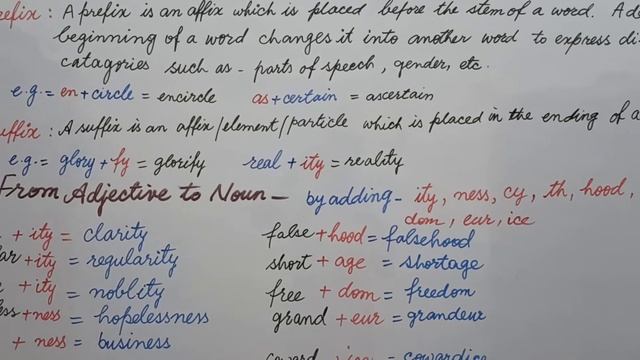 refix : A prefix is an affix which is placed before the stem of a word. Ad
beginning of a word changes it into another word to express di
catagories such as - parts of speech, gender, etc.
e.g. = en + circle = encircle as + certain = ascertain
uffix : A suffix is an affix/element/particle which is placed in the ending of a
e.g. = glory + fy = glorify real + ity = reality
From Adjective to Noun - by adding - ity, ness, cy, th, hood,
dom, eur, ice
+ ity = clarity false + hood = falsehood
ar + ity = regularity short + age = shortage
+ ity = noblity free + dom = freedom
ess + ness = hopelessness grand + eur = grandeur
+ ness = business
coward = cowardice